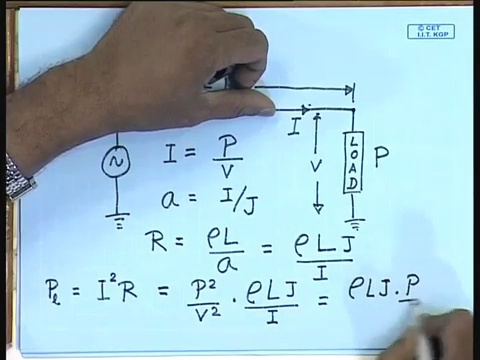 © CET
I.I.T. KGP
I
V
LOAD
P
~
I = P/V
a = I/J
R = ρL/a = ρLJ/I
Pₗ = I²R = P²/V² · ρLJ/I = ρLJ · P